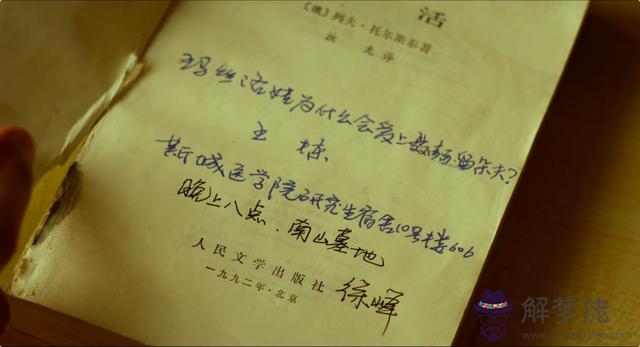 活
〔俄〕列夫·托尔斯泰著
汝龙译
玛丝洛娃为什么会爱上聂赫留朵夫?
王栋
城医学院研究生宿舍10号楼606
晚上八点.南山墓地
人民文学出版社
一九九二年·北京
徐峰
解梦佬